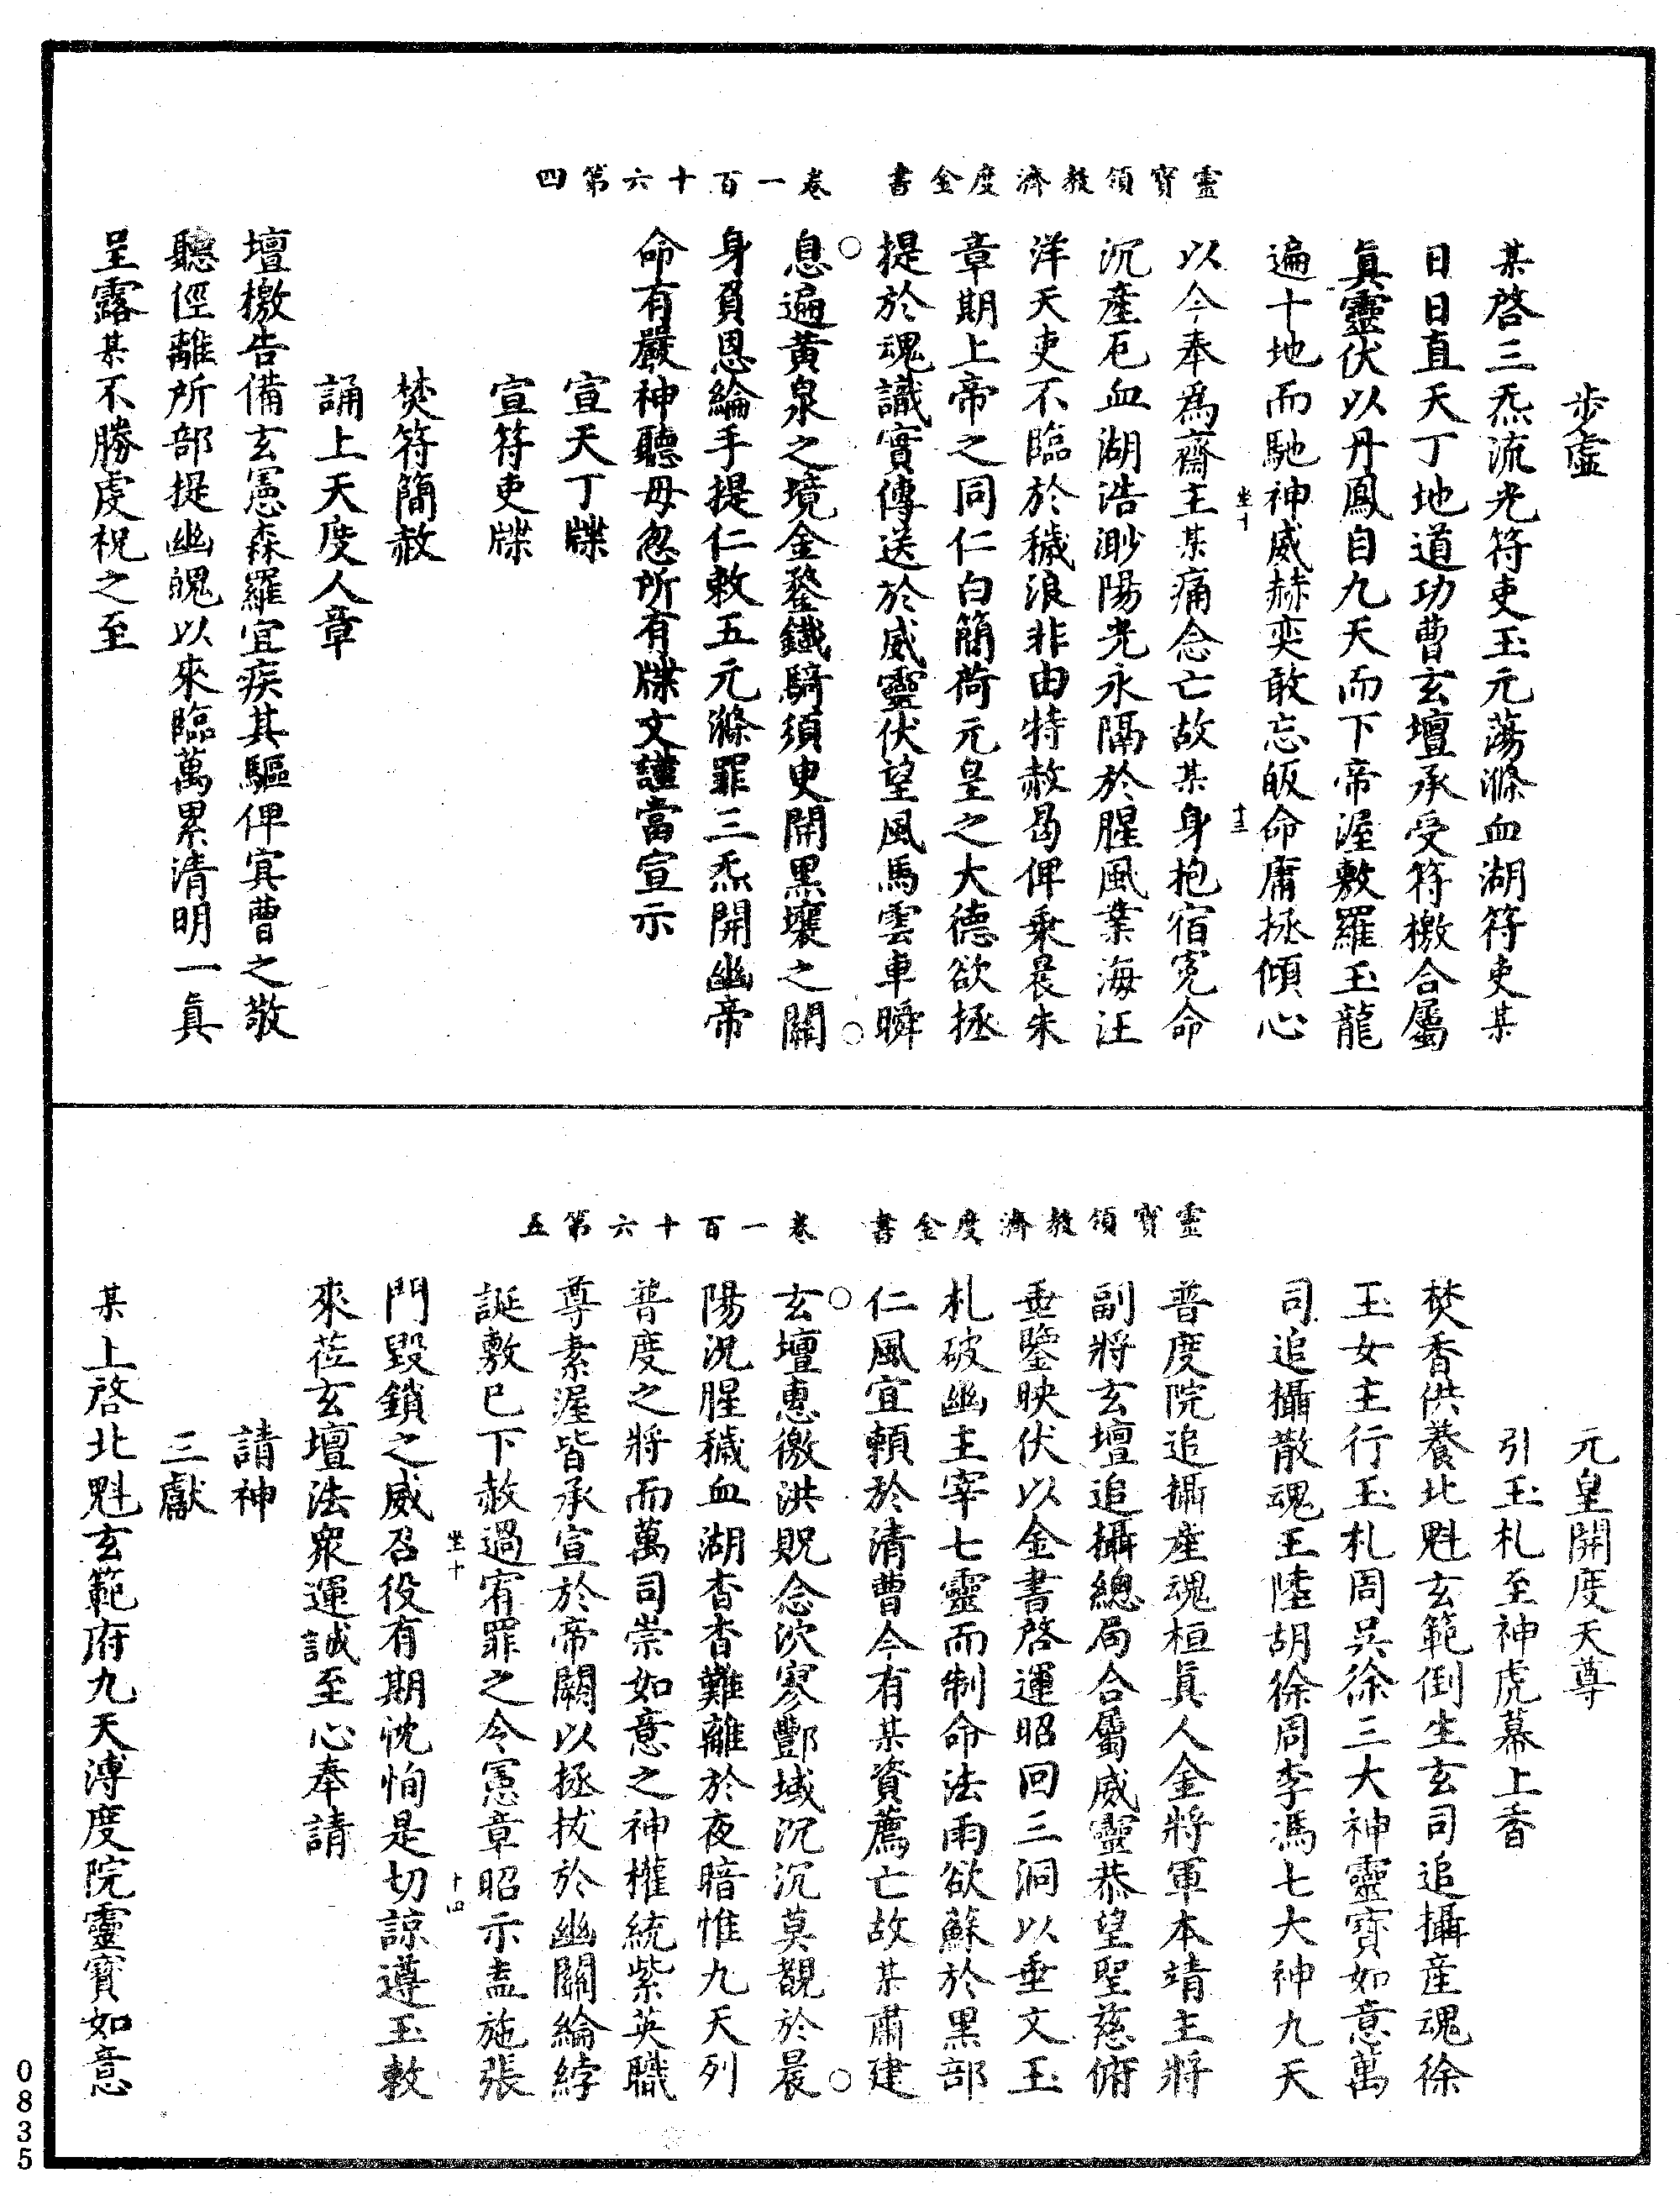 靈寶領教濟度金書 卷一百十六第四
步虛
某啓三炁流光符吏玉元蕩滌血湖符吏某
日日直天丁地道功曹玄壇承受符檄合屬
眞靈伏以丹鳳自九天而下帝渥敷羅玉龍
遍十地而馳神威赫奕敢忘皈命庸拯傾心
坐十 十三
以今奉爲齋主某痛念亡故某身抱宿寃命
沉產厄血湖浩渺陽光永隔於腥風業海汪
洋天吏不臨於穢浪非由特赦曷俾乘晨朱
章期上帝之同仁白簡荷元皇之大德欲拯
提於魂識實傳送於威靈伏望風馬雲車瞬
息遍黃泉之境金鍪鐵騎須史開黑壤之關
身負恩綸手提仁敕五元滌罪三炁開幽帝
命有嚴神聽毋忽所有牒文謹當宣示
宣天丁牒
宣符吏牒
焚符簡赦
誦上天度人章
壇檄告備玄憲森羅宜疾其驅俾㝠曹之敬
聽徑離所部提幽魄以來臨萬累清明一眞
呈露某不勝虔祝之至
靈寶領教濟度金書 卷一百十六第五
元皇開度天尊
引玉札至神虎幕上香
焚香供養北魁玄範倒生玄司追攝產魂徐
玉女主行玉札周吳徐三大神靈寶如意萬
司追攝散魂王陸胡徐周李馮七大神九天
普度院追攝產魂桓眞人金將軍本靖主將
副將玄壇追攝總局合屬威靈恭望聖慈俯
垂鑒映伏以金書啓運昭回三洞以垂文玉
札破幽主宰七靈而制命法雨欲蘇於黑部
仁風宜頼於清曹今有某資薦亡故某肅建
玄壇惠徼洪貺念泬寥酆域沉沉莫覩於晨
陽況腥穢血湖杳杳難離於夜暗惟九天列
普度之將而萬司崇如意之神權統紫英職
尊素渥皆承宣於帝闕以拯拔於幽關綸綍
誕敷已下赦過宥罪之令憲章昭示盍施張
坐十 十四
門毀鎖之威召役有期忱恂是切諒遵玉敕
來莅玄壇法衆運誠至心奉請
請神
三獻
某上啓北魁玄範府九天溥度院靈寶如意
0835